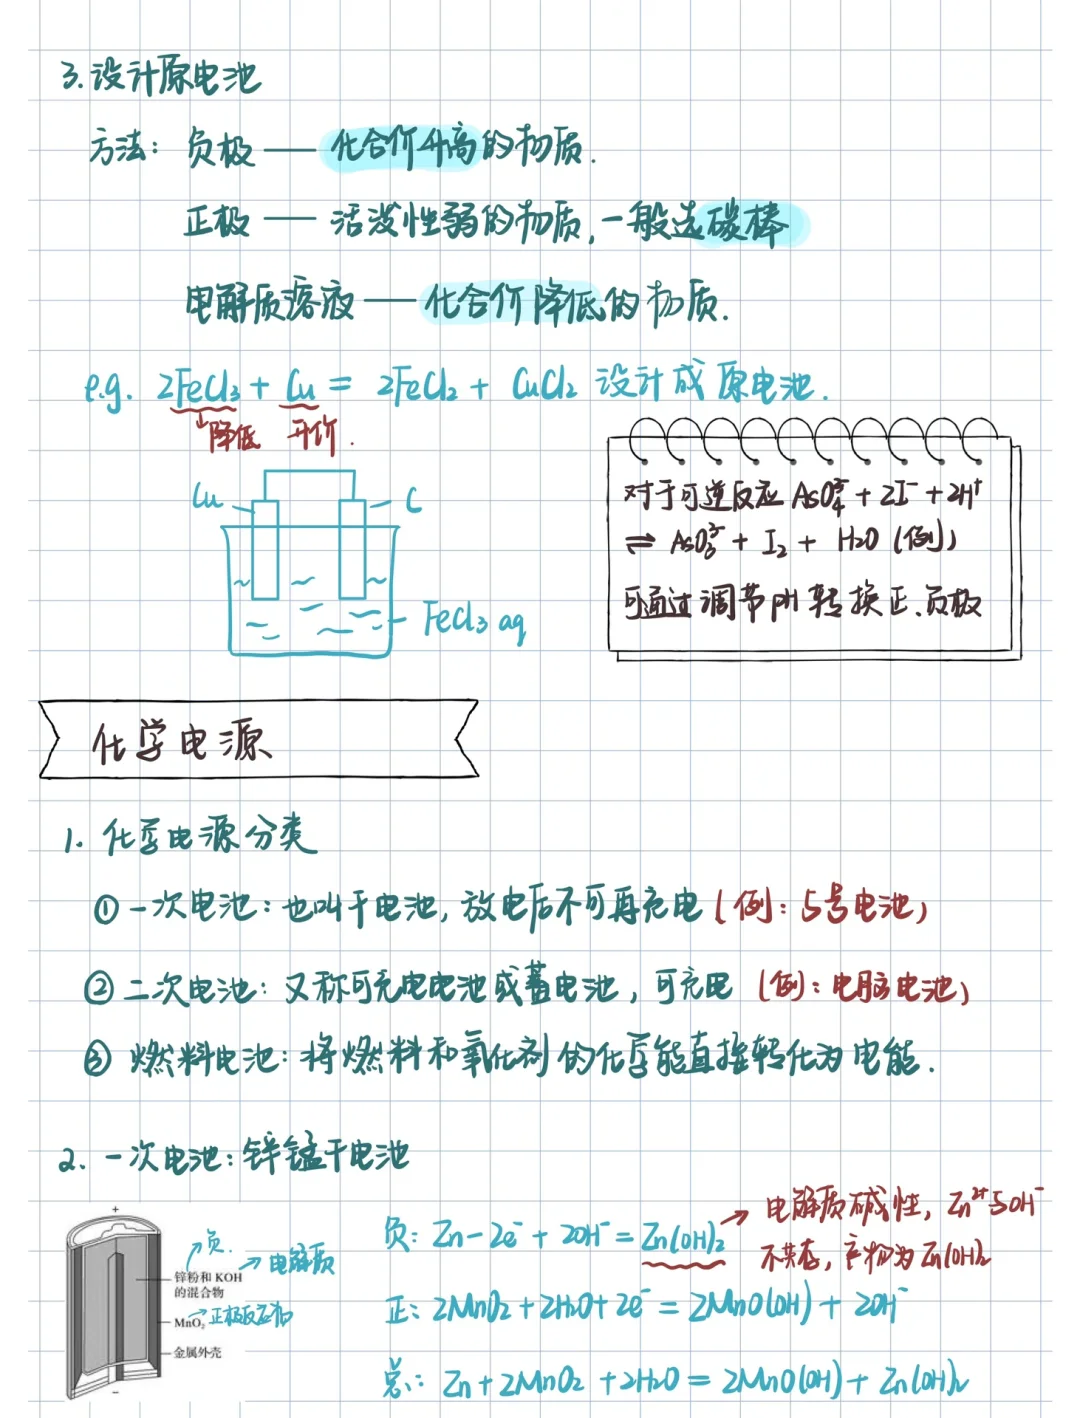 3.设计原电池
方法：负极 —— 化合价升高的物质.
正极 —— 活泼性弱的物质,一般选碳棒
电解质溶液 —— 化合价降低的物质.
e.g. 2FeCl₃ + Cu = 2FeCl₂ + CuCl₂ 设计成原电池.
↓降低 升价.
Cu C
FeCl₃ aq
对于可逆反应 AsO₄³⁻ + 2I⁻ + 2H⁺
⇌ AsO₃³⁻ + I₂ + H₂O (例)
可通过调节pH转换正、负极
化学电源
1. 化学电源分类
①一次电池：也叫干电池, 放电后不可再充电 (例：5号电池)
②二次电池：又称可充电电池或蓄电池, 可充电 (例：电脑电池)
③燃料电池：将燃料和氧化剂的化学能直接转化为电能.
2. 一次电池：锌锰干电池
+
→负.
→电解质
锌粉和 KOH
的混合物
MnO₂ →正极反应物
金属外壳
−
负：Zn−2e⁻ + 2OH⁻ = Zn(OH)₂
→ 电解质碱性, Zn²⁺与OH⁻
不共存, 产物为 Zn(OH)₂
正：2MnO₂ + 2H₂O + 2e⁻ = 2MnO(OH) + 2OH⁻
总：Zn + 2MnO₂ + 2H₂O = 2MnO(OH) + Zn(OH)₂